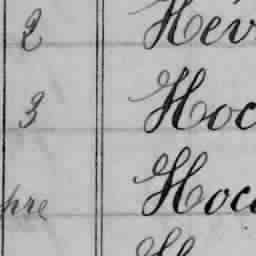 2 Hév
3 Hoc
bre Hoc